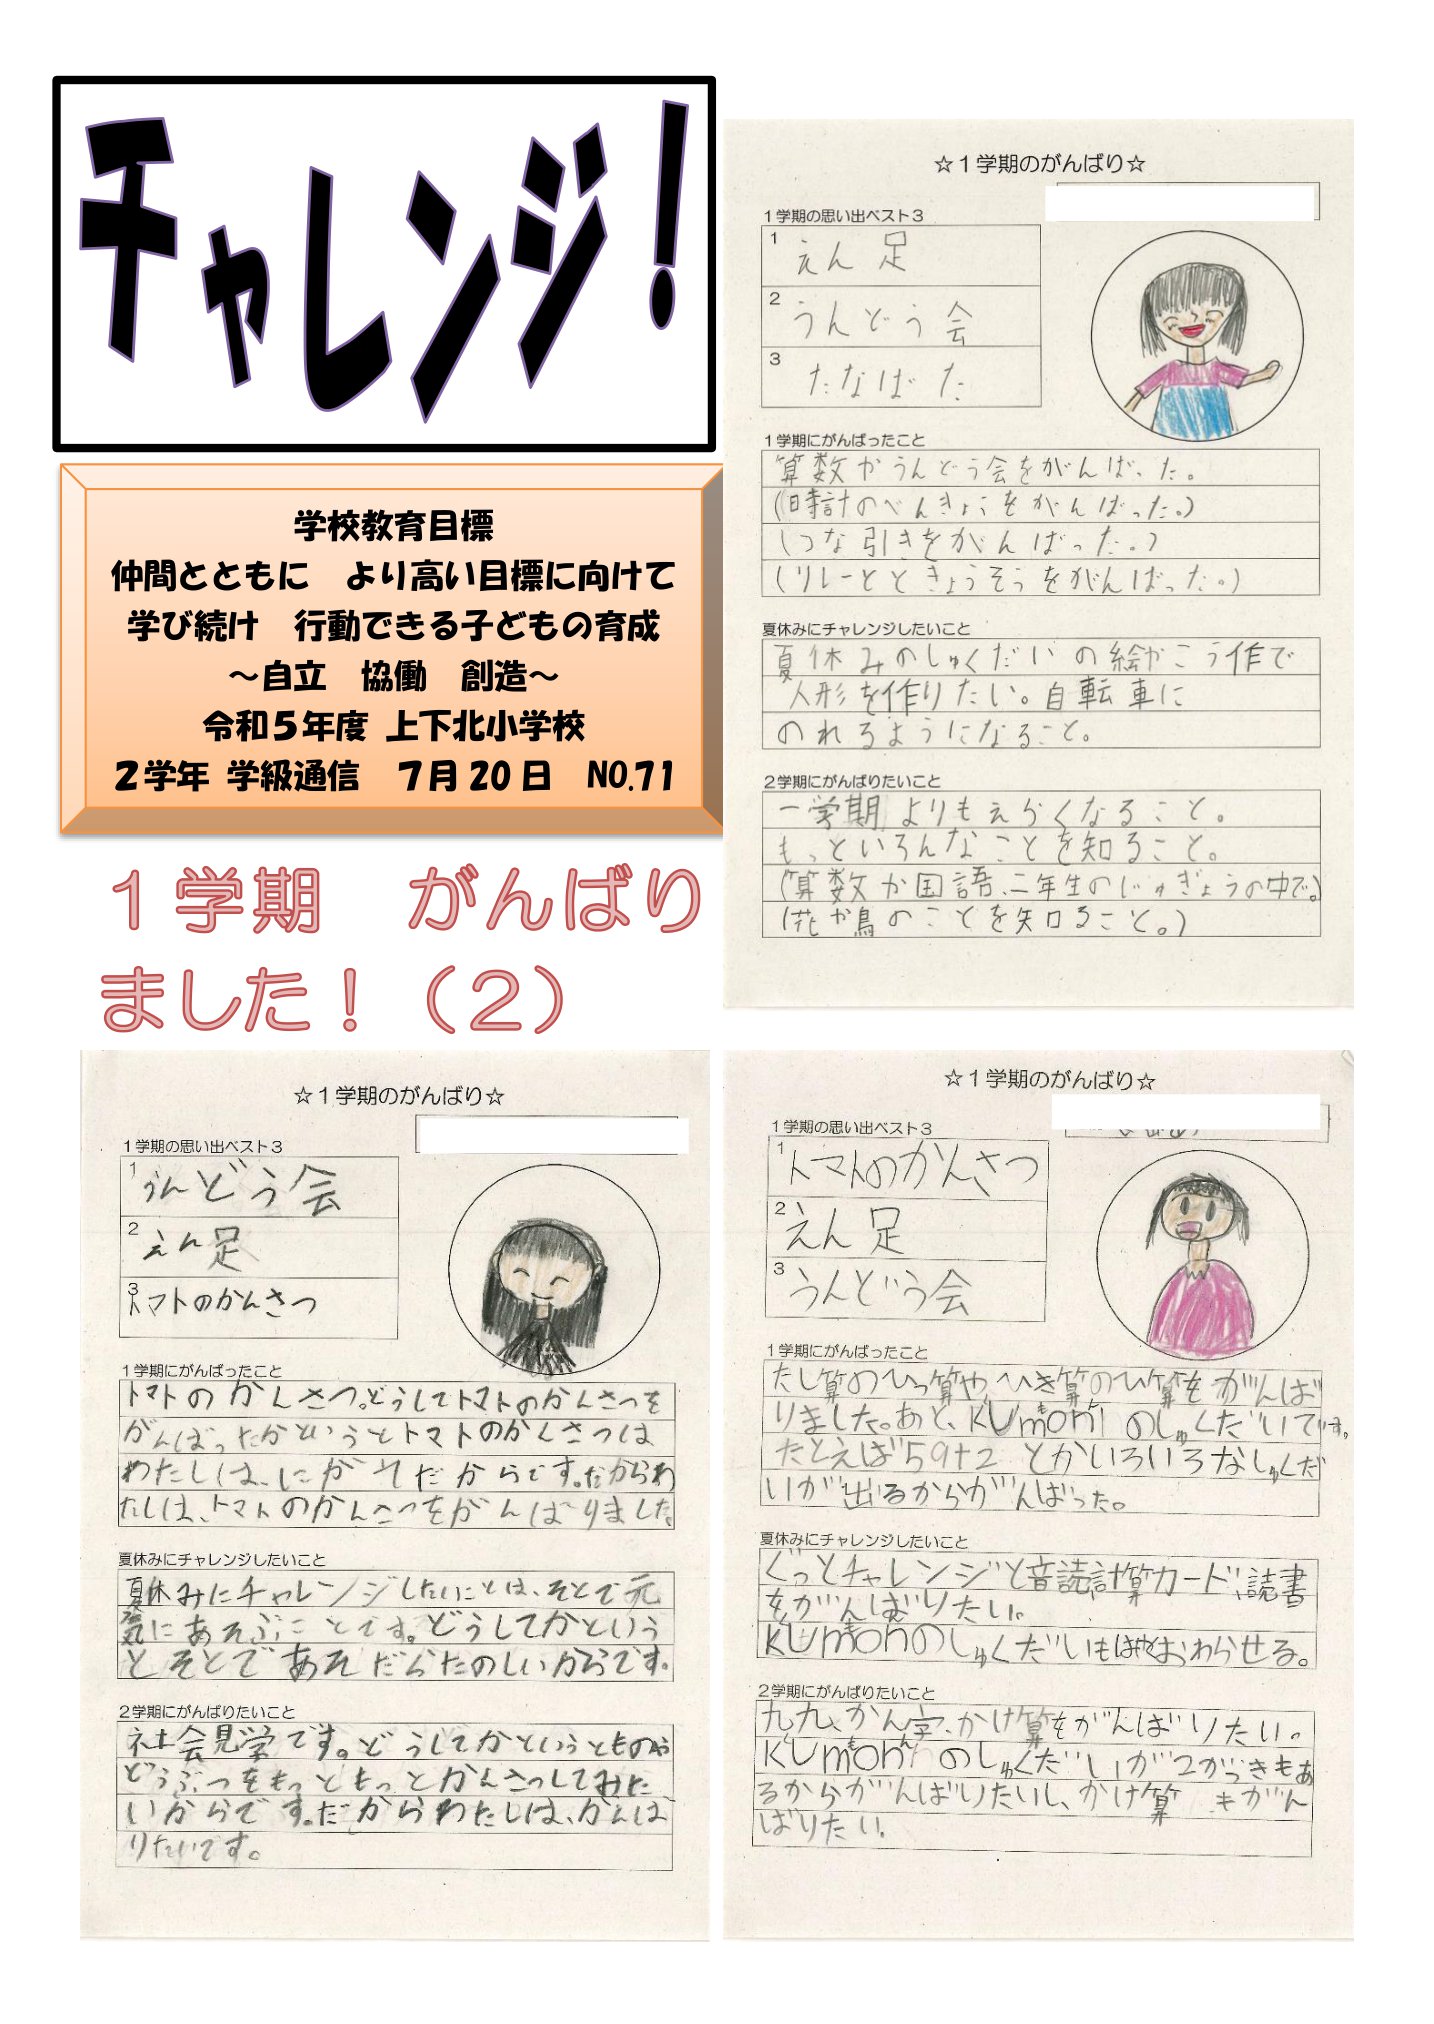 チャレンジ！
学校教育目標
仲間とともに　より高い目標に向けて
学び続け　行動できる子どもの育成
～自立　協働　創造～
令和５年度 上下北小学校
２学年 学級通信　７月20日　NO.71
１学期　がんばり
ました！（２）
☆１学期のがんばり☆
１学期の思い出ベスト３
1 えん足
2 うんどう会
3 たなばた
１学期にがんばったこと
算数やうんどう会をがんばった。
(時計のべんきょうをがんばった。)
(つな引きをがんばった。)
(リレーとときょうそうをがんばった。)
夏休みにチャレンジしたいこと
夏休みのしゅくだいの絵かこう作で
人形を作りたい。自転車に
のれるようになること。
２学期にがんばりたいこと
一学期よりもえらくなること。
もっといろんなことを知ること。
(算数か国語、二年生のじゅぎょうの中で。)
(花や鳥のことを知ること。)
☆１学期のがんばり☆
１学期の思い出ベスト３
1 うんどう会
2 えん足
3 トマトのかんさつ
１学期にがんばったこと
トマトのかんさつ。どうしてトマトのかんさつを
がんばったかというとトマトのかんさつは
わたしは、にがてだからです。だからわ
たしは、トマトのかんさつをがんばりました。
夏休みにチャレンジしたいこと
夏休みにチャレンジしたいことは、そとで元
気にあそぶことです。どうしてかという
とそとであそだらたのしいからです。
２学期にがんばりたいこと
社会見学です。どうしてかというとものや
どうぶつをもっともっとかんさつしてみた
いからです。だからわたしは、がんば
りたいです。
☆１学期のがんばり☆
１学期の思い出ベスト３
1 トマトのかんさつ
2 えん足
3 うんどう会
１学期にがんばったこと
たし算のひっ算や、ひき算のひ算をがんば
りました。あと、KUmonのしゅくだいです。
たとえば59+2とかいろいろなしゅくだ
いが出るからがんばった。
夏休みにチャレンジしたいこと
ぐっとチャレンジと音読計算カード、読書
をがんばりたい。
KUmonのしゅくだいもはやくおわらせる。
２学期にがんばりたいこと
九九、かん字、かけ算をがんばりたい。
KUmonのしゅくだいが2がっきもあ
るからがんばりたいし、かけ算もがん
ばりたい。